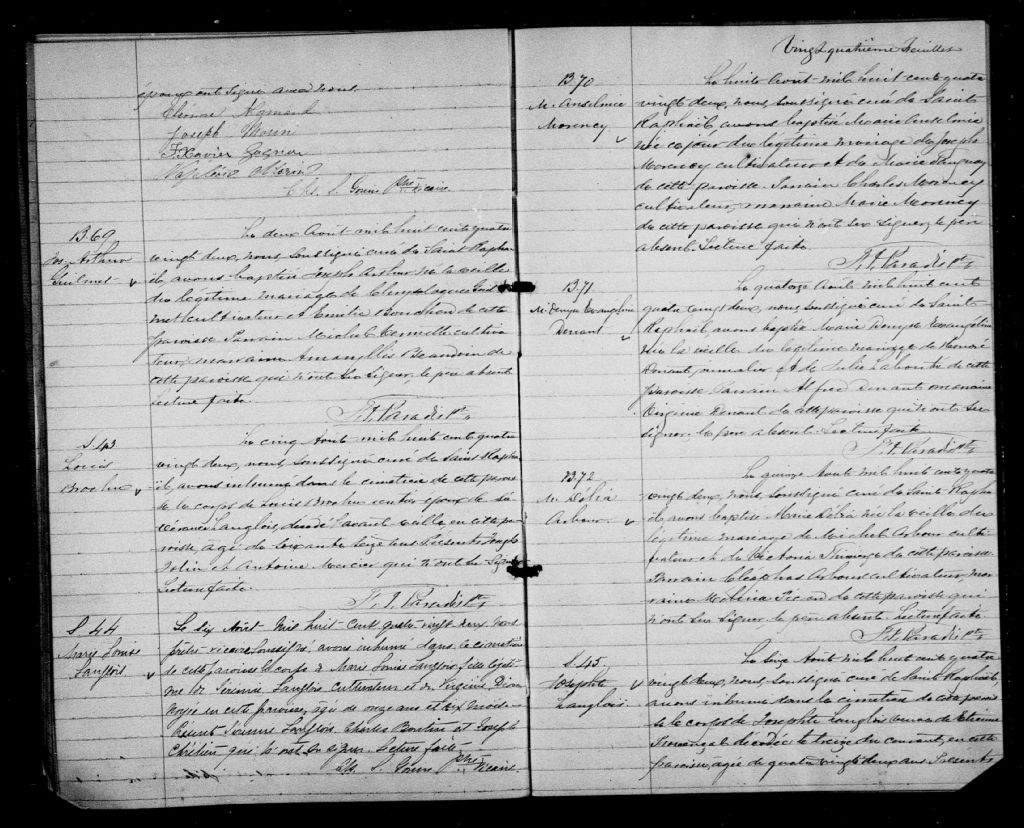 époux ont signé avec nous.
Joseph Morin
F. Xavier Gagnon
Napoléon Morin
Chs. S. Ptre Vicaire
B.69
Jos. Arthur
Guilmet
Le deux Août mil huit cent quatre
vingt deux, nous soussigné curé de Saint Rapha-
ël, avons baptisé Joseph Arthur né la veille
du légitime mariage de Guil
met cultivateur et Emélie Bouchard de cette
paroisse Parrain Michel cultiva
teur, marraine Amaryllis Beaudoin de
cette paroisse qui n'ont su signer, le père absent
Lecture faite.
Paradis Ptre
S.43
Louis
Brochu
Le cinq Août mil huit cent quatre
vingt deux, nous soussigné curé de Saint Rapha
ël, avons inhumé dans le cimetière de cette parois
se le corps de Louis Brochu
Langlois, décédé l'avant veille, en cette pa
roisse, âgé de soixante seize ans. Présents Joseph
Jolin et Antoine Mercier qui n'ont su signer
Lecture faite.
Paradis Ptre
S.44
Marie Louise
Langlois
Le six Août mil huit cent quatre vingt deux nous
prêtre vicaire soussigné, avons inhumé dans le cimetière
de cette paroisse le corps de Marie Louise Langlois fille légiti
me de Langlois cultivateur et de Virginie Dion
noyée en cette paroisse, âgée de onze ans et dix mois
Présents Langlois, Charles et Joseph
Chrétien qui n'ont su signer. Lecture faite
Chs. S. Ptre Vicaire
Vingt quatrième feuillet
B.70
M. Anselmie
Morency
Le huit Août mil huit cent quatre
vingt deux, nous soussigné curé de Saint
Raphaël, avons baptisé Marie Anselmie
née ce jour du légitime mariage de Joseph
Morency cultivateur et de Marie Tanguay
de cette paroisse. Parrain Charles Morency
cultivateur, marraine Marie Morency
de cette paroisse qui n'ont su signer, le père
absent. Lecture faite.
Paradis Ptre
B.71
M. Denyse Evangeline
Denant
Le quatorze Août mil huit cent
quatre vingt deux, nous soussigné curé de Saint
Raphaël avons baptisé Marie Denyse Evangéline
née la veille du légitime mariage de Honoré
Denant, et de Julie Labonté de cette
paroisse Parrain Alfred Denant marraine
Virginie Denant de cette paroisse qui n'ont su
signer le père absent. Lecture faite
Paradis Ptre
B.72
M. Délia
Arbour
Le quinze Août mil huit cent quatre
vingt deux, nous soussigné curé de Saint Rapha
ël, avons baptisé Marie Délia née la veille du
légitime mariage de Michel Arbour culti
vateur et de Victoria de cette paroisse.
Parrain Cléophas Arbour cultivateur, mar
raine Picard de cette paroisse qui
n'ont su signer le père absent. Lecture faite.
Paradis Ptre
S.45.
Josephte
Langlois
Le seize Août mil huit cent quatre
vingt deux, nous soussigné curé de Saint Raphaël
avons inhumé dans le cimetière de cette parois
se le corps de Josephte Langlois veuve de Etienne
décédée le treize du courant, en cette
paroisse, âgée de quatre vingt deux ans Présents